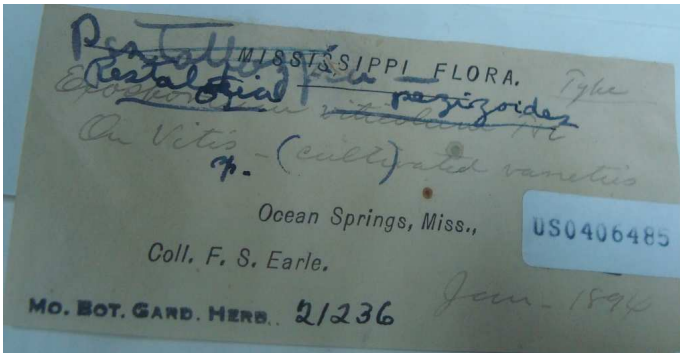 MISSISSIPPI FLORA.
Type
Pestalozzia
Pestalozzia pezizoides
Exosporium viticolum
On Vitis - (cultivated varieties
p.
Ocean Springs, Miss.,
US0406485
Coll. F. S. Earle.
Jan - 1894
MO. BOT. GARD. HERB. 21236